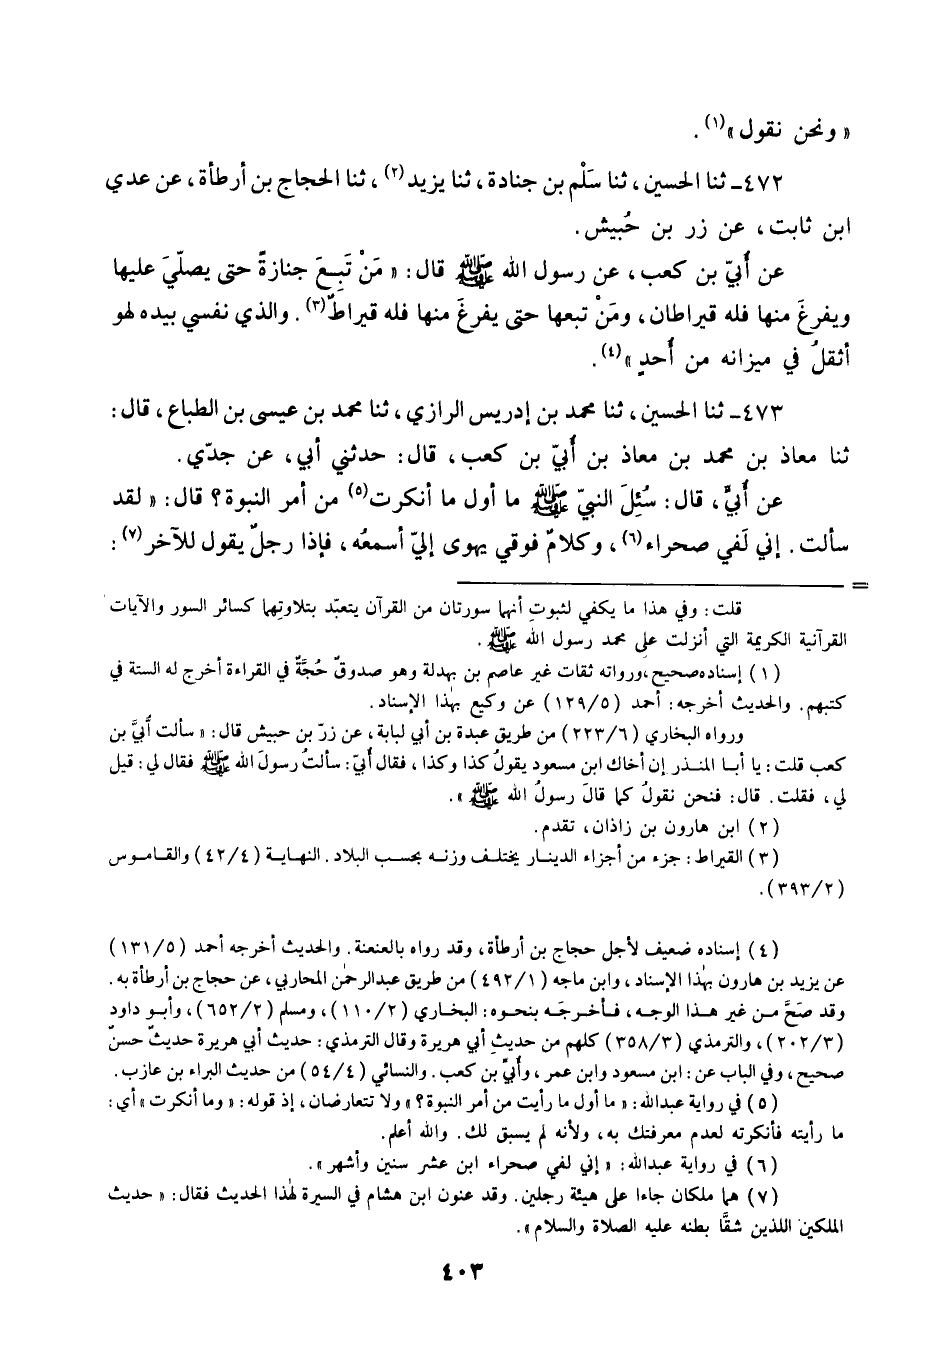 « ونحن نقول »(١) .
٤٧٢ـ ثنا الحسين ، ثنا سَلْم بن جنادة ، ثنا يزيد(٢) ، ثنا الحجاج بن أرطأة ، عن عدي
ابن ثابت ، عن زر بن حُبيش .
عن أُبيّ بن كعب ، عن رسول الله ﷺ قال : « مَنْ تَبِعَ جنازةً حتى يصلّيَ عليها
ويفرغَ منها فله قيراطان ، ومَنْ تبعها حتى يفرغَ منها فله قيراطٌ(٣) . والذي نفسي بيده لهو
أثقلُ في ميزانه من أُحدٍ »(٤) .
٤٧٣ـ ثنا الحسين ، ثنا محمد بن إدريس الرازي ، ثنا محمد بن عيسى بن الطباع ، قال :
ثنا معاذ بن محمد بن معاذ بن أُبيّ بن كعب ، قال : حدثني أبي ، عن جدّي .
عن أُبيٍّ ، قال : سُئِلَ النبيّ ﷺ ما أول ما أنكرت(٥) من أمر النبوة ؟ قال : « لقد
سألت . إني لَفي صحراء(٦) ، وكلامٌ فوقي يهوى إليّ أسمعُه ، فإذا رجلٌ يقول للآخر(٧) :
=
قلت : وفي هذا ما يكفي لثبوتِ أنها سورتان من القرآن يتعبّد بتلاوتهما كسائر السور والآيات
القرآنية الكريمة التي أنزلت على محمد رسول الله ﷺ .
(١) إسناده صحيح ، ورواته ثقات غير عاصم بن بهدلة وهو صدوقٌ حُجَّةٌ في القراءة أخرج له الستة في
كتبهم . والحديث أخرجه : أحمد (١٢٩/٥) عن وكيع بهٰذا الإسناد .
ورواه البخاري (٢٢٣/٦) من طريق عبدة بن أبي لبابة ، عن زرّ بن حبيش قال : « سألت أُبيَّ بن
كعب قلت : يا أبا المنذر إن أخاك ابن مسعود يقولُ كذا وكذا ، فقال أُبيّ : سألتُ رسولَ الله ﷺ فقال لي : قيل
لي ، فقلت . قال : فنحن نقولُ كما قالَ رسولُ الله ﷺ » .
(٢) ابن هارون بن زاذان ، تقدم .
(٣) القيراط : جزء من أجزاء الدينار يختلف وزنه بحسب البلاد . النهاية (٤٢/٤) والقاموس
(٣٩٣/٢) .
(٤) إسناده ضعيف لأجل حجاج بن أرطأة ، وقد رواه بالعنعنة . والحديث أخرجه أحمد (١٣١/٥)
عن يزيد بن هارون بهٰذا الإسناد ، وابن ماجه (٤٩٢/١) من طريق عبدالرحمٰن المحاربي ، عن حجاج بن أرطأة به .
وقد صَحَّ من غير هذا الوجه ، فأخرجَه بنحوه : البخاري (١١٠/٢) ، ومسلم (٦٥٢/٢) ، وأبو داود
(٢٠٢/٣) ، والترمذي (٣٥٨/٣) كلهم من حديثِ أبي هريرة وقال الترمذي : حديث أبي هريرة حديثٌ حسنٌ
صحيح ، وفي الباب عن : ابن مسعود وابن عمر ، وأُبيِّ بن كعب . والنسائي (٥٤/٤) من حديث البراء بن عازب .
(٥) في رواية عبدالله : « ما أول ما رأيت من أمر النبوة ؟ » ولا تتعارضان ، إذ قوله : « وما أنكرت » أي :
ما رأيته فأنكرته لعدم معرفتك به ، ولأنه لم يسبق لك . والله أعلم .
(٦) في رواية عبدالله : « إني لفي صحراء ابن عشر سنين وأشهر » .
(٧) هما ملكان جاءا على هيئة رجلين . وقد عنون ابن هشام في السيرة لهٰذا الحديث فقال : « حديث
الملكين اللذين شقَّا بطنه عليه الصلاة والسلام » .
٤٠٣